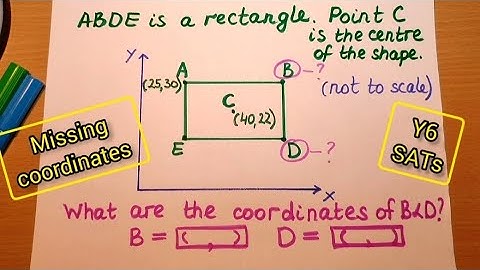 ABDE is a rectangle. Point C
is the centre
of the shape.
Y
A
B - ?
(25,30)
(not to scale)
C
(40,22)
Missing
coordinates
Y6
SATs
E
D - ?
X
What are the coordinates of B&D?
B = ( , ) D = ( , )